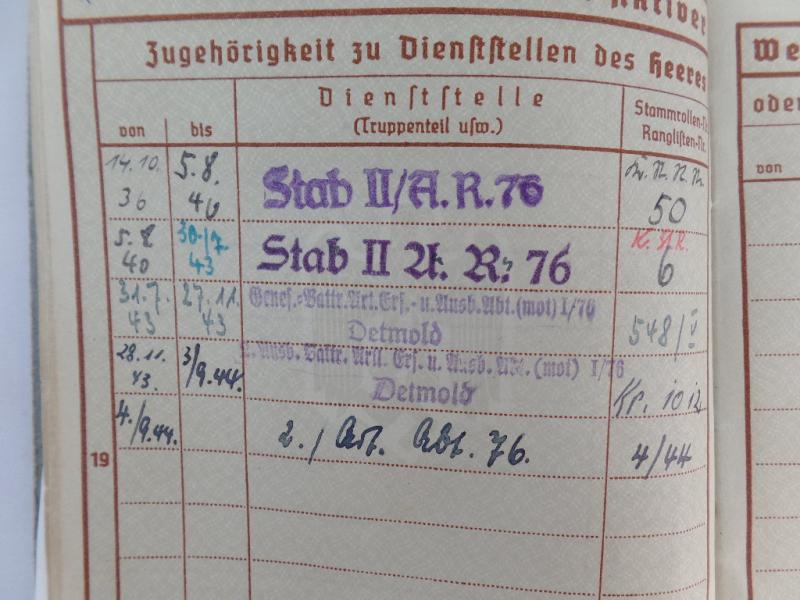 Zugehörigkeit zu Dienststellen des Heeres
Dienststelle
(Truppenteil usw.)
Stammrollen-Nr.
Ranglisten-Nr.
von
bis
14.10.
36
5.8.
40
Stab II/A.R.76
50
5.8.
40
30./7.
43
Stab II A. R. 76
K. St. R.
6
31.7.
43
27.11.
43
Genes.-Battr.Art.Ers.- u.Ausb.Abt.(mot) I/76
Detmold
548/V
28.11.
43.
3/9.44.
Ausb. Battr. Artl. Ers. u. Ausb. Abt. (mot) I/76
Detmold
4./9.44.
2./ Art. Abt. 76.
4/44
19
We
oder
von